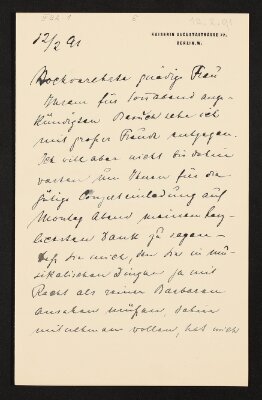 12.2.91
KAISERIN AUGUSTASTRASSE 57.
BERLIN.W.
12/2 91
Hochverehrte gnädige Frau
Ihrem für Sonnabend ange-
kündigten Besuch sehe ich
mit großer Freude entgegen.
Ich will aber nicht bis dahin
warten um Ihnen für die
gütige Concerteinladung auf
Montag Abend meinen herz-
lichsten Dank zu sagen –
daß Sie mich, den Sie in mu-
sikalischen Dingen ja mit
Recht als reinen Barbaren
ansehen müssen, dahin
mitnehmen wollen, hat mich